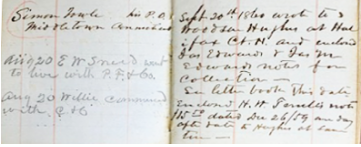 Simon Towle his P.O. is
Middletown Connecticut
Aug 20 E W Sneed went
to live with P. F. & Co.
Aug 20 Willie commenced
with C & G
Sept 20th 1860 wrote to
Woodson Hughes at Hal
ifax Ct. H. and enclosed
Jas Edwards &
Edwards notes for
Collection —
See letter book this date
Enclosed H. H. note
$15 00 dated Dec 26/59 on day
after date to Hughes at same
time —